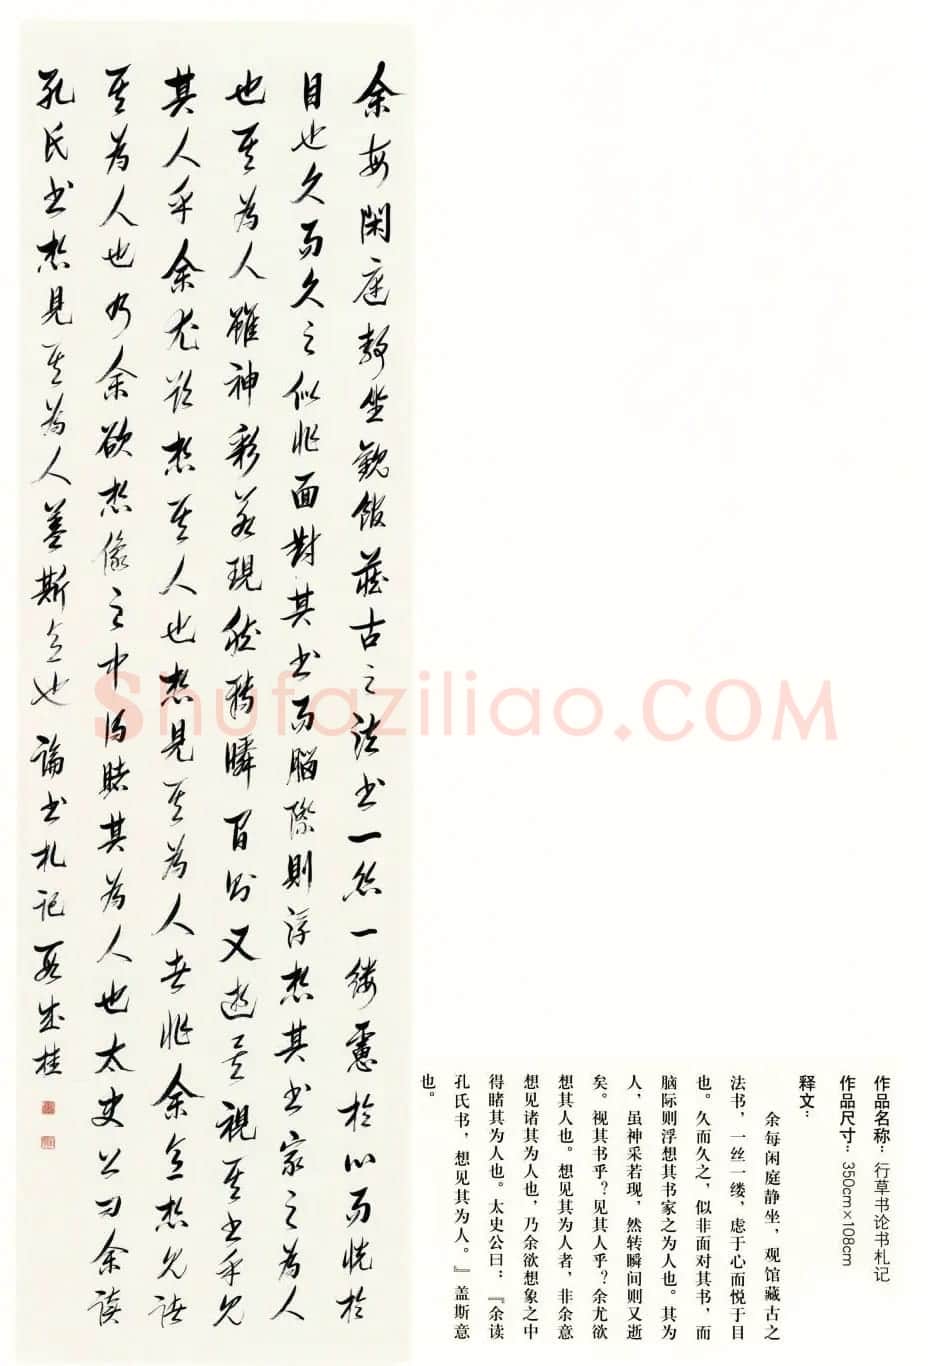 余每閑庭靜坐觀館藏古之法書一絲一縷慮於心而悅於
目也久而久之似非面對其書而腦際則浮想其書家之為人
也其為人雖神彩若現然轉瞬間則又逝矣視其書乎見
其人乎余尤欲想其人也想見其為人者非余意想見諸
其為人也乃余欲想像之中得睹其為人也太史公曰余讀
孔氏書想見其為人蓋斯意也論書札記段成桂
作品名称：行草书论书札记
作品尺寸：350cm×108cm
释文：
余每闲庭静坐，观馆藏古之
法书，一丝一缕，虑于心而悦于目
也。久而久之，似非面对其书，而
脑际则浮想其书家之为人也。其为
人，虽神采若现，然转瞬间则又逝
矣。视其书乎？见其人乎？余尤欲
想其人也。想见其为人者，非余意
想见诸其为人也，乃余欲想象之中
得睹其为人也。太史公曰：『余读
孔氏书，想见其为人。』盖斯意
也。
Shufaziliao.COM